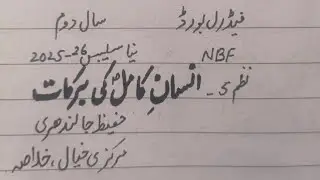 فیڈرل بورڈ سال دوم
NBF نیا سلیبس 26-2025
نظم 5۔ انسانِ کاملؐ کی برکات
حفیظ جالندھری
مرکزی خیال، خلاصہ